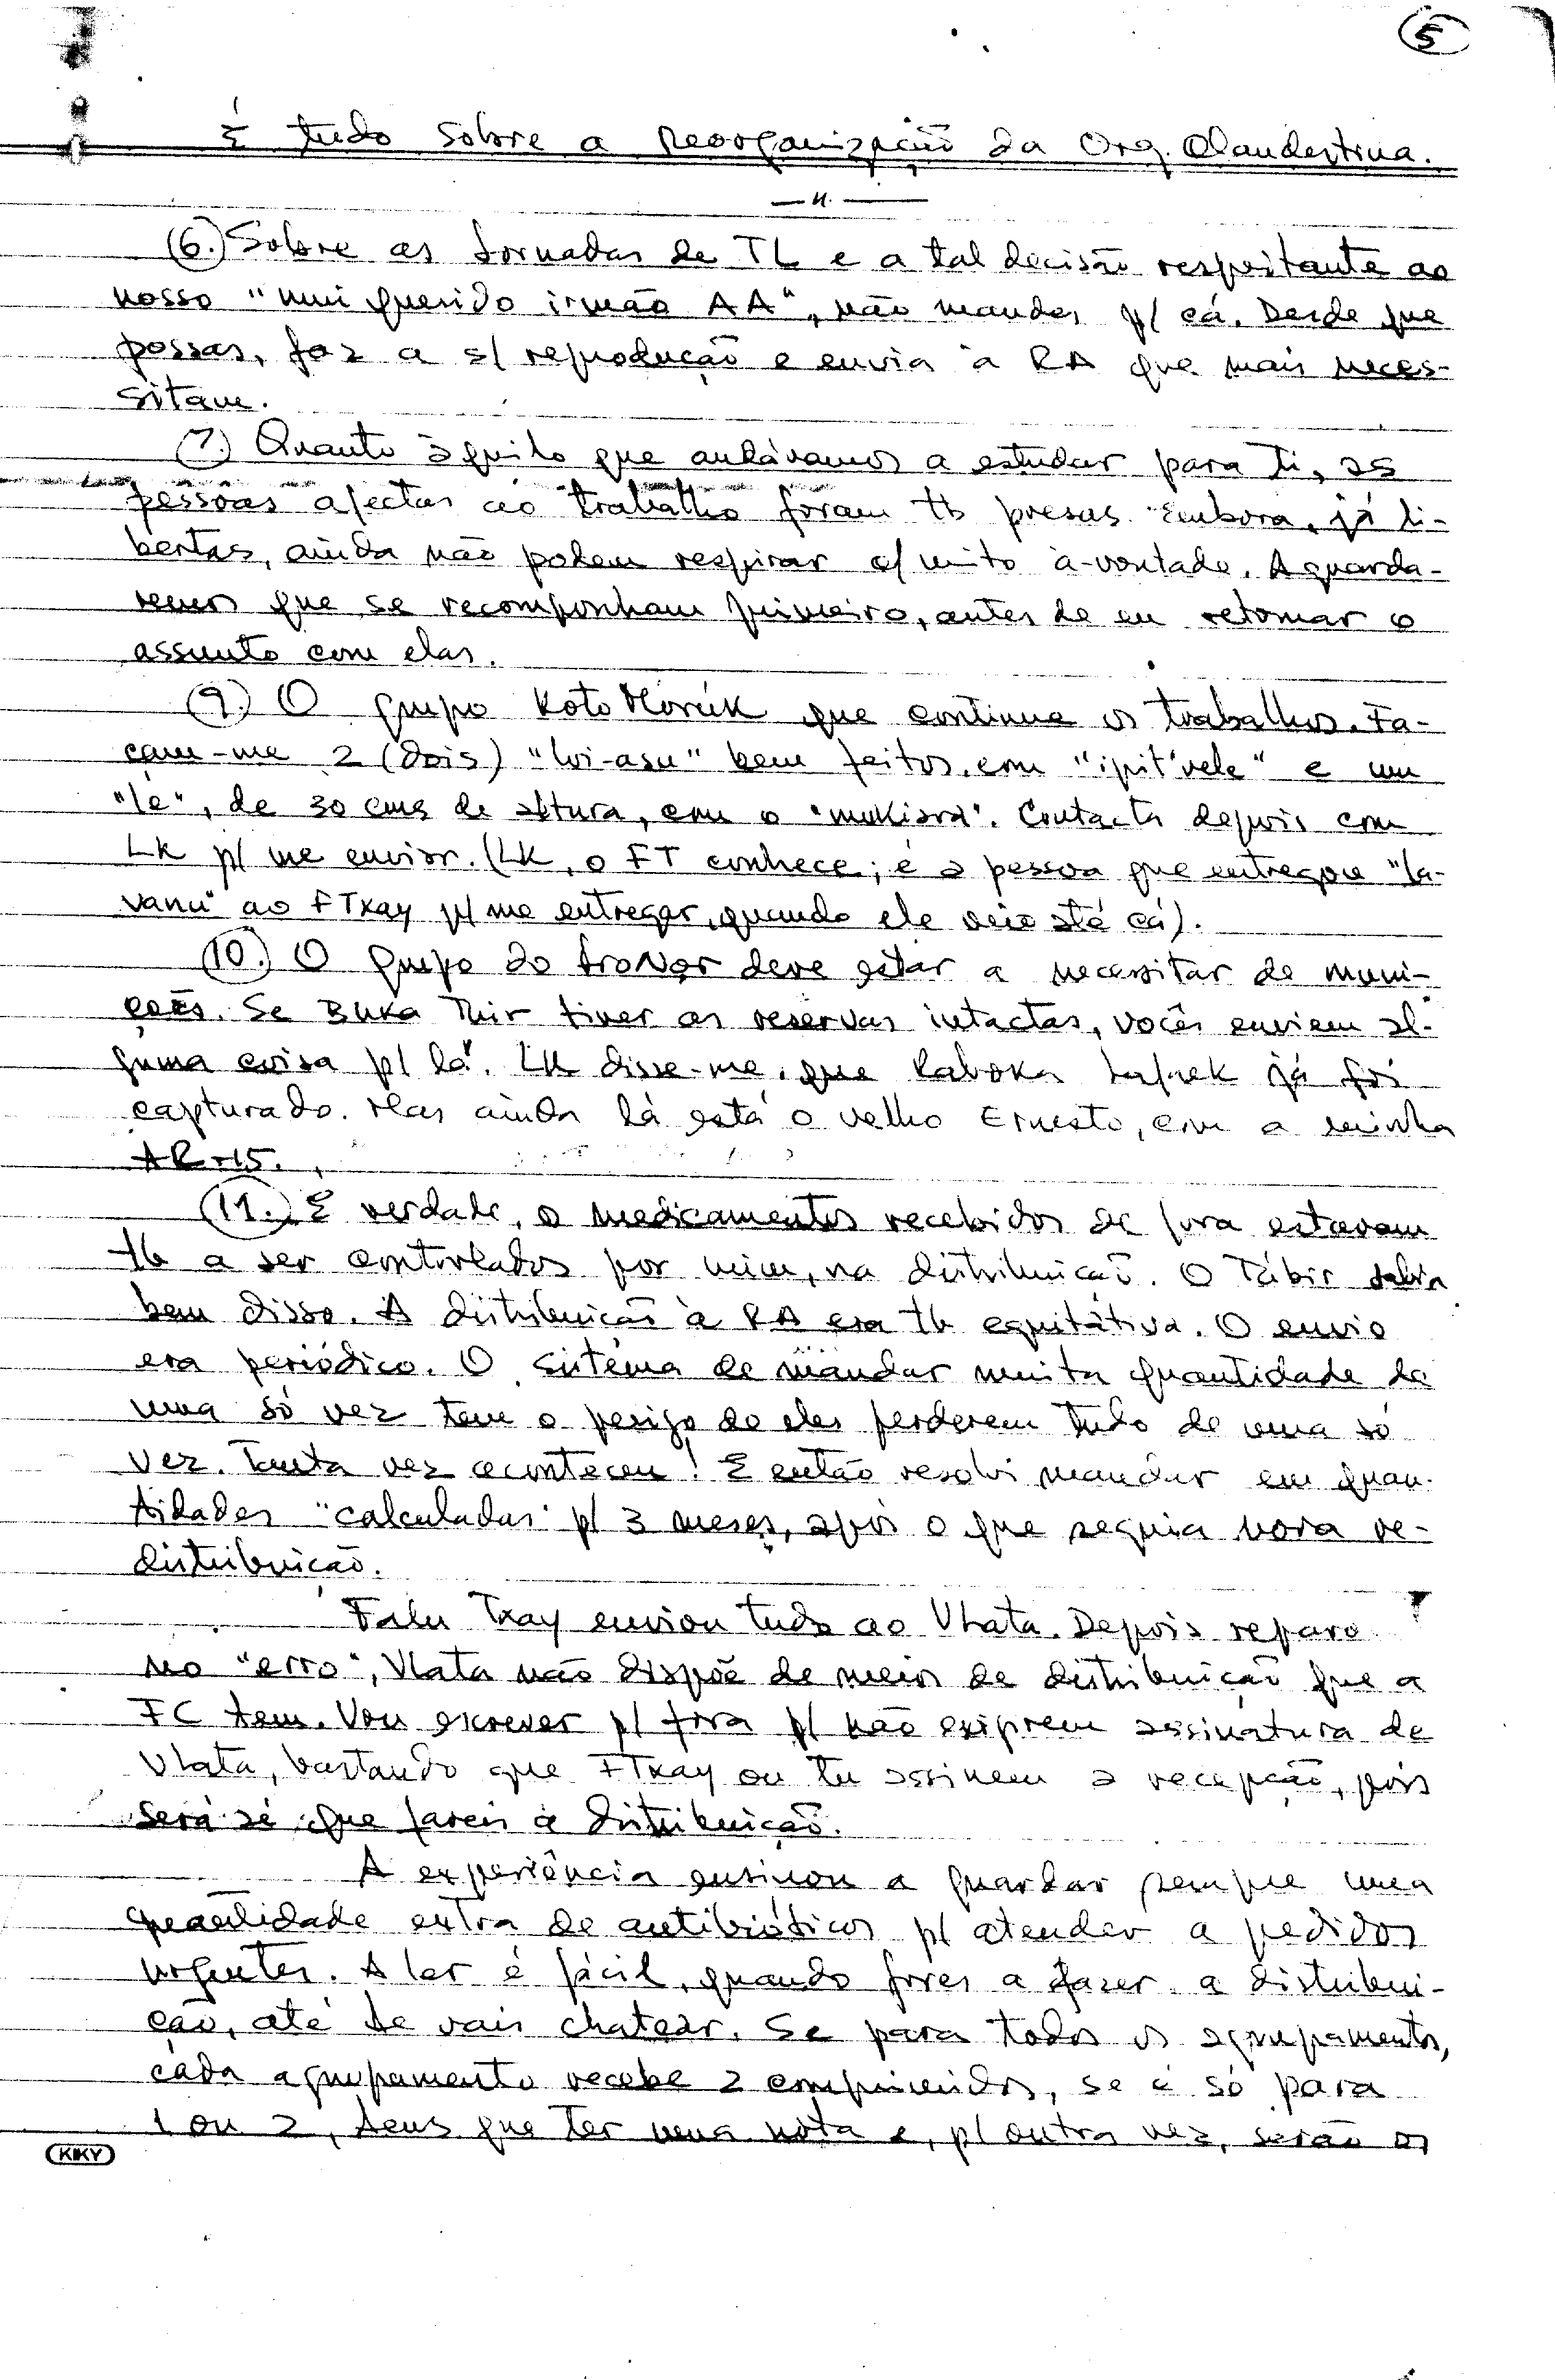 5
É tudo sobre a Reorganização da Org. Clandestina.
(6.) Sobre as Jornadas de TL e a tal decisão respeitante ao
nosso "mui querido irmão AA", não mandes p/ cá. Desde que
possas, faz a s/ reprodução e envia à RA que mais neces-
sitam.
(7.) Quanto àquilo que andávamos a estudar para ti, as
pessoas afectas ao trabalho foram tb presas. Embora, já li-
bertas, ainda não podem respirar c/ mito à-vontade. Aguarda-
remos que se recomponham primeiro, antes de eu retomar o
assunto com elas.
(9.) O grupo Koto Moruk que continue os trabalhos. Fa-
çam-me 2 (dois) "loi-asu" bem feitos, com "ipit vele" e um
"le", de 30 cms de altura, com o . Contacta depois com
LK p/ me enviar. (LK, o FT conhece; é a pessoa que entregou "la-
vanu" ao FTxay p/ me entregar, quando ele veio até cá).
(10.) O Grupo do deve estar a necessitar de muni-
ções. Se Buka Mir tiver as reservas intactas, vocês enviem al-
guma coisa p/ lá. LK disse-me, que já foi
capturado. Mas ainda lá está o velho Ernesto, com a minha
AR-15.
(11.) É verdade, o medicamentos recebidos de fora estavam
tb a ser controlados por mim, na distribuição. O Tábir sabia
bem disso. A distribuição à RA era tb equitátiva. O envio
era periódico. O sistema de mandar muita quantidade de
uma só vez tem o perigo de eles perderem tudo de uma só
vez. Tanta vez aconteceu! E então resolvi mandar em quan-
tidades "calculadas" p/ 3 meses, após o que seguia nova re-
distribuição.
Falu Txay enviou tudo ao Ulata. Depois reparo
no "erro", Ulata não dispõe de meios de distribuição que a
FC tem. Vou escrever p/ fora p/ não exigirem assinatura de
Ulata, bastando que FTxay ou tu assinem a recepção, pois
será sé que fareis a distribuição.
A experiência ensinou a guardar sempre uma
quantidade extra de antibióticos p/ atender a pedidos
urgentes. A ler é fácil, quando fores a fazer a distribui-
ção, até te vais chatear. Se para todos os agrupamentos,
cada agrupamento recebe 2 comprimidos, se é só para
1 ou 2, tens que ter uma nota e, p/ outra vez, serão os
KIKY